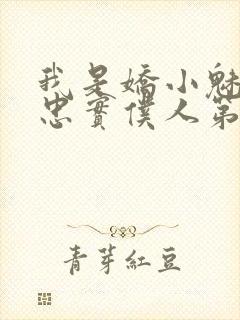 我是嬌小魅
忠實僕人第
青芽紅豆